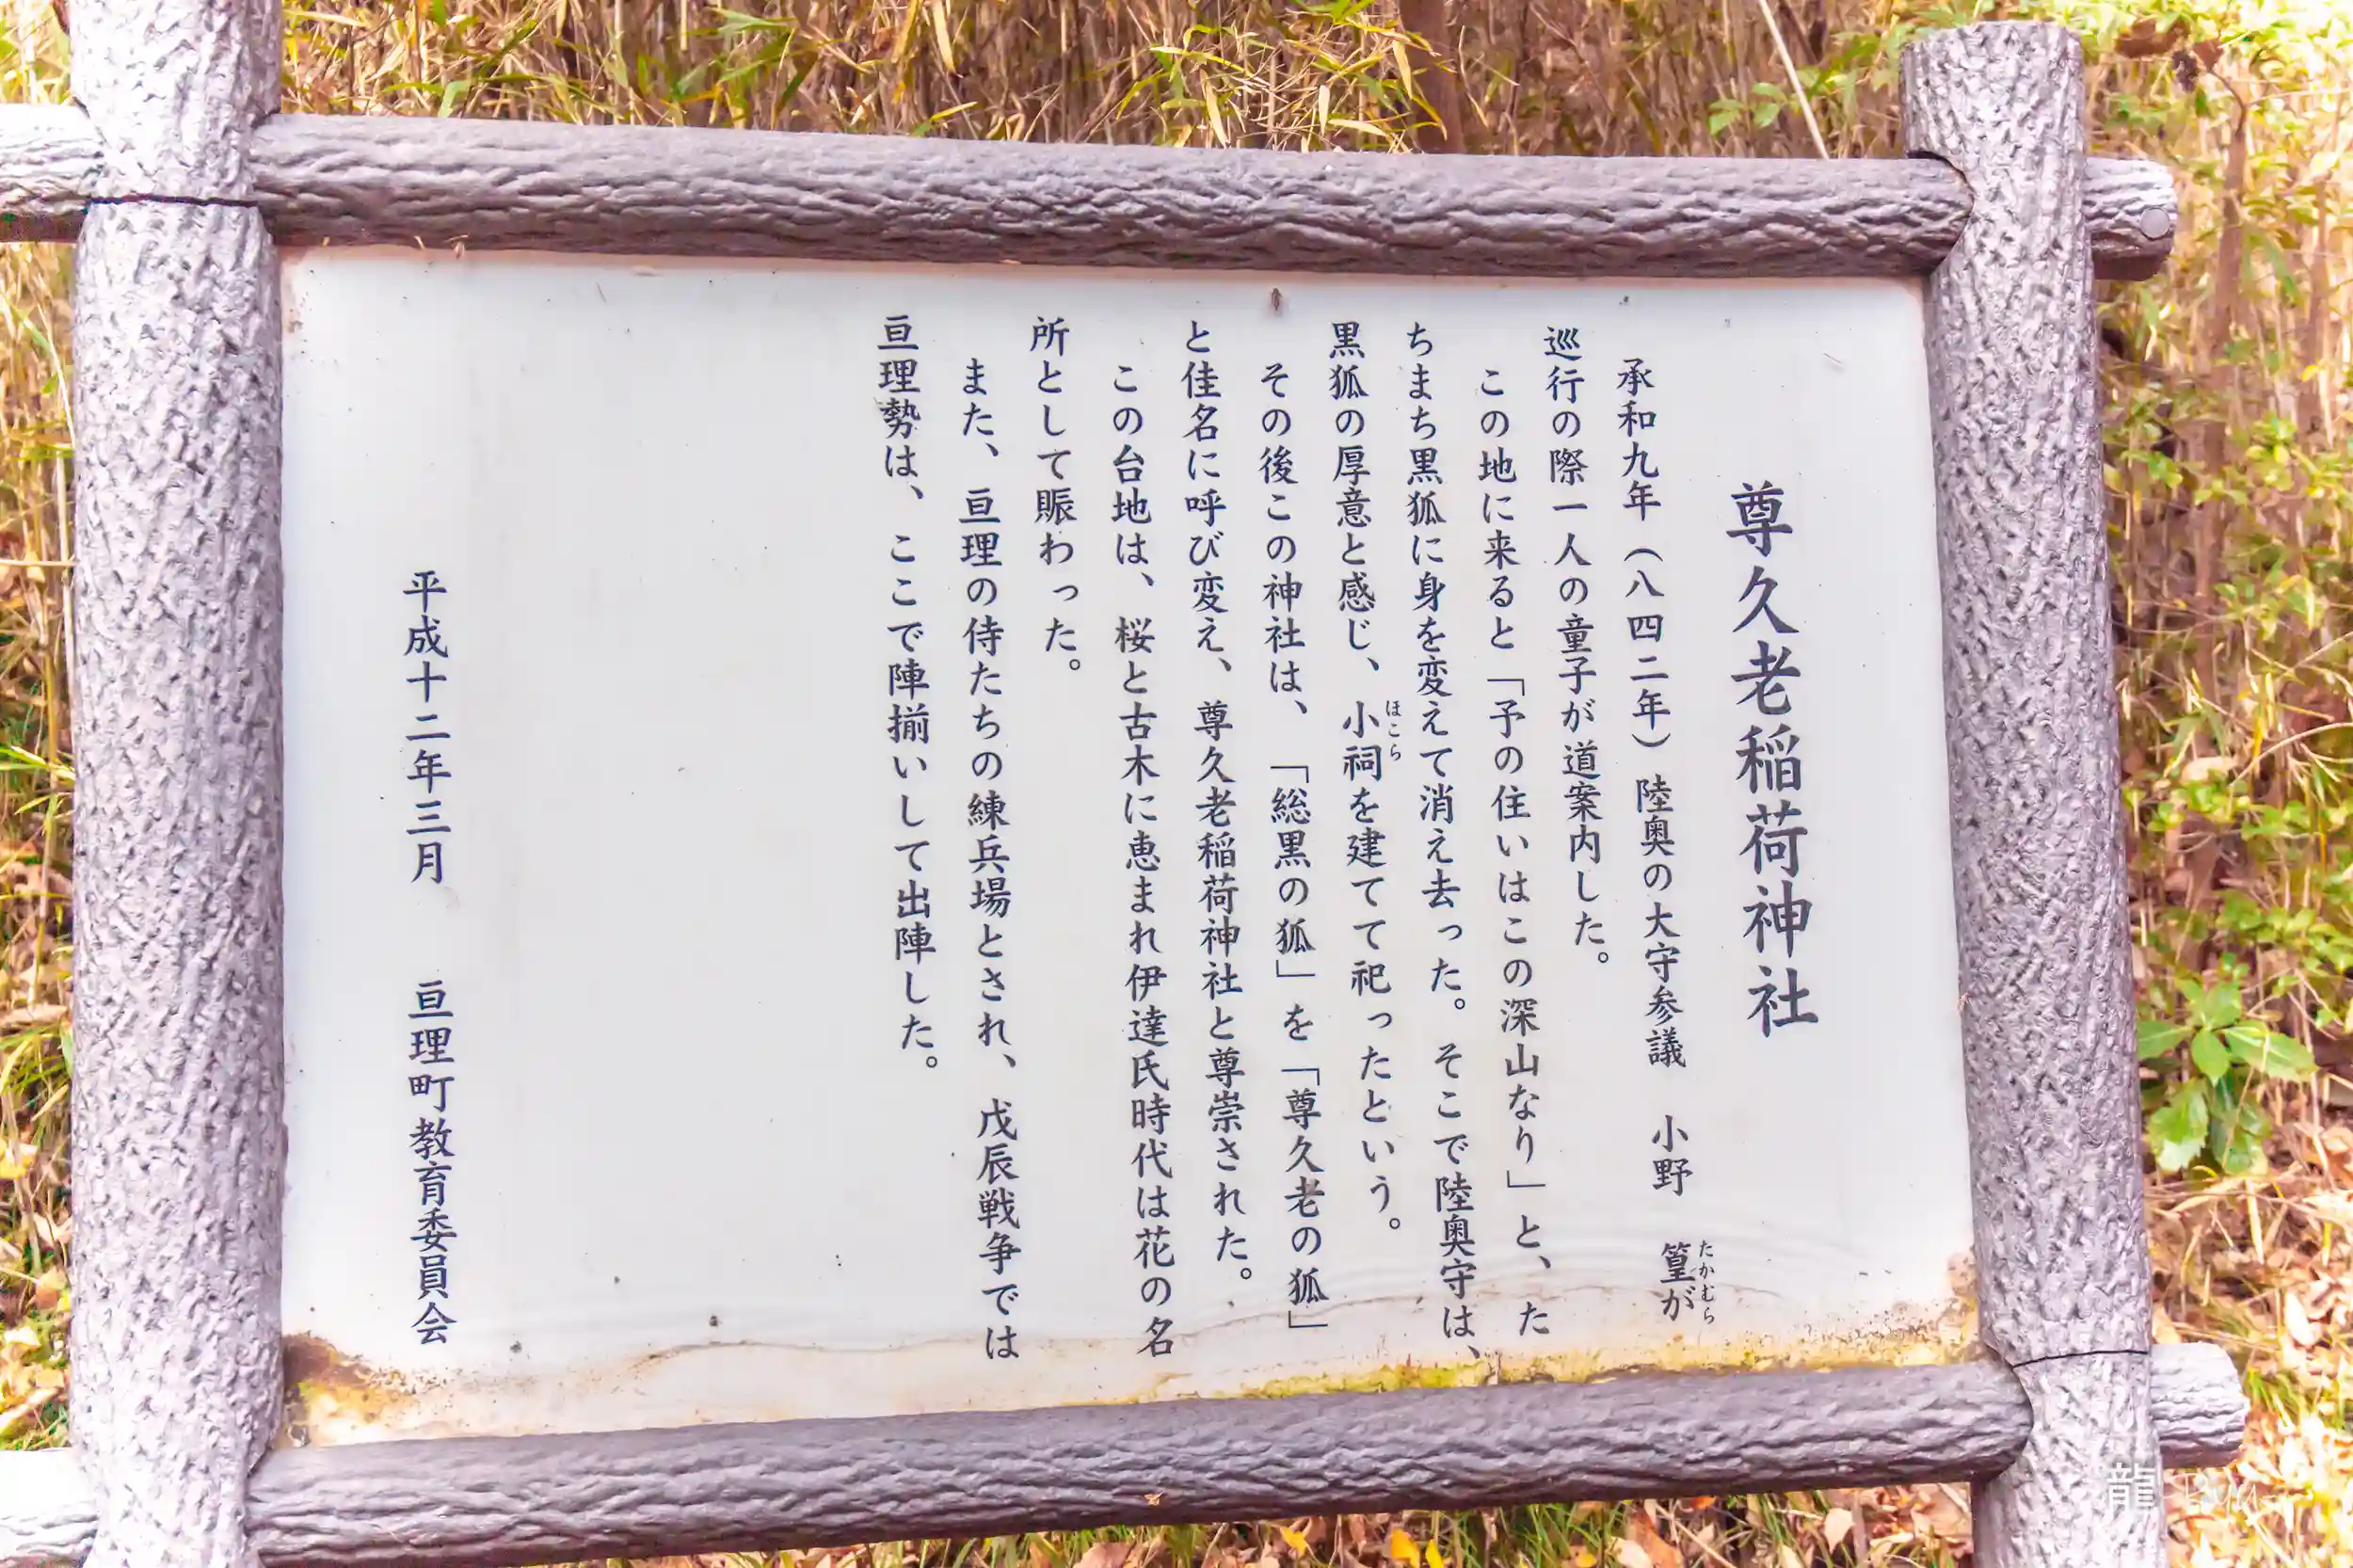 尊久老稲荷神社
承和九年(八四二年)陸奥の大守参議 小野 篁が
たかむら
巡行の際一人の童子が道案内した。
この地に来ると「予の住いはこの深山なり」と、た
ちまち黒狐に身を変えて消え去った。そこで陸奥守は、
黒狐の厚意と感じ、小祠を建てて祀ったという。
ほこら
その後この神社は、「総黒の狐」を「尊久老の狐」
と佳名に呼び変え、尊久老稲荷神社と尊崇された。
この台地は、桜と古木に恵まれ伊達氏時代は花の名
所として賑わった。
また、亘理の侍たちの練兵場とされ、戊辰戦争では
亘理勢は、ここで陣揃いして出陣した。
平成十二年三月 亘理町教育委員会
龍 Ryu